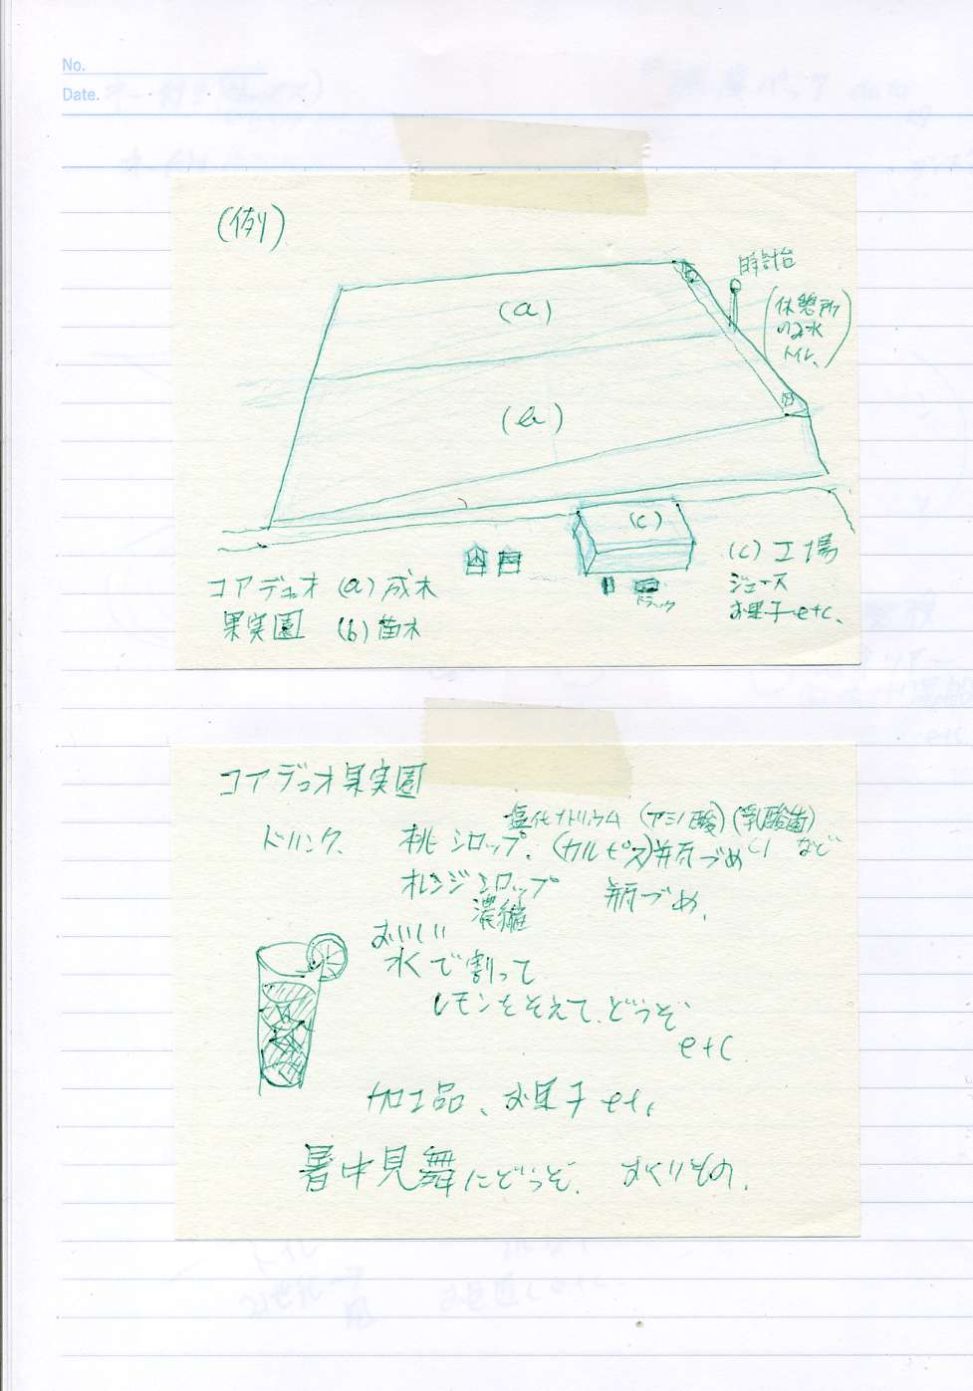 No.
Date.
(例)
時計台
(a)
(休憩所
のみ水
トイレ、)
(b)
(c)
(c) 工場
ジュース
お菓子etc.
トラック
コアデュオ (a) 成木
果実園 (b) 苗木
コアデュオ果実園
塩化ナトリウム (アミノ酸) (乳酸菌)
ドリンク、桃シロップ、(カルピス)瓶づめ など
オレンジシロップ 瓶づめ、
濃縮
おいしい
水で割って
レモンをそえて、どうぞ
etc.
加工品、お菓子 etc,
暑中見舞にどうぞ、おくりもの、